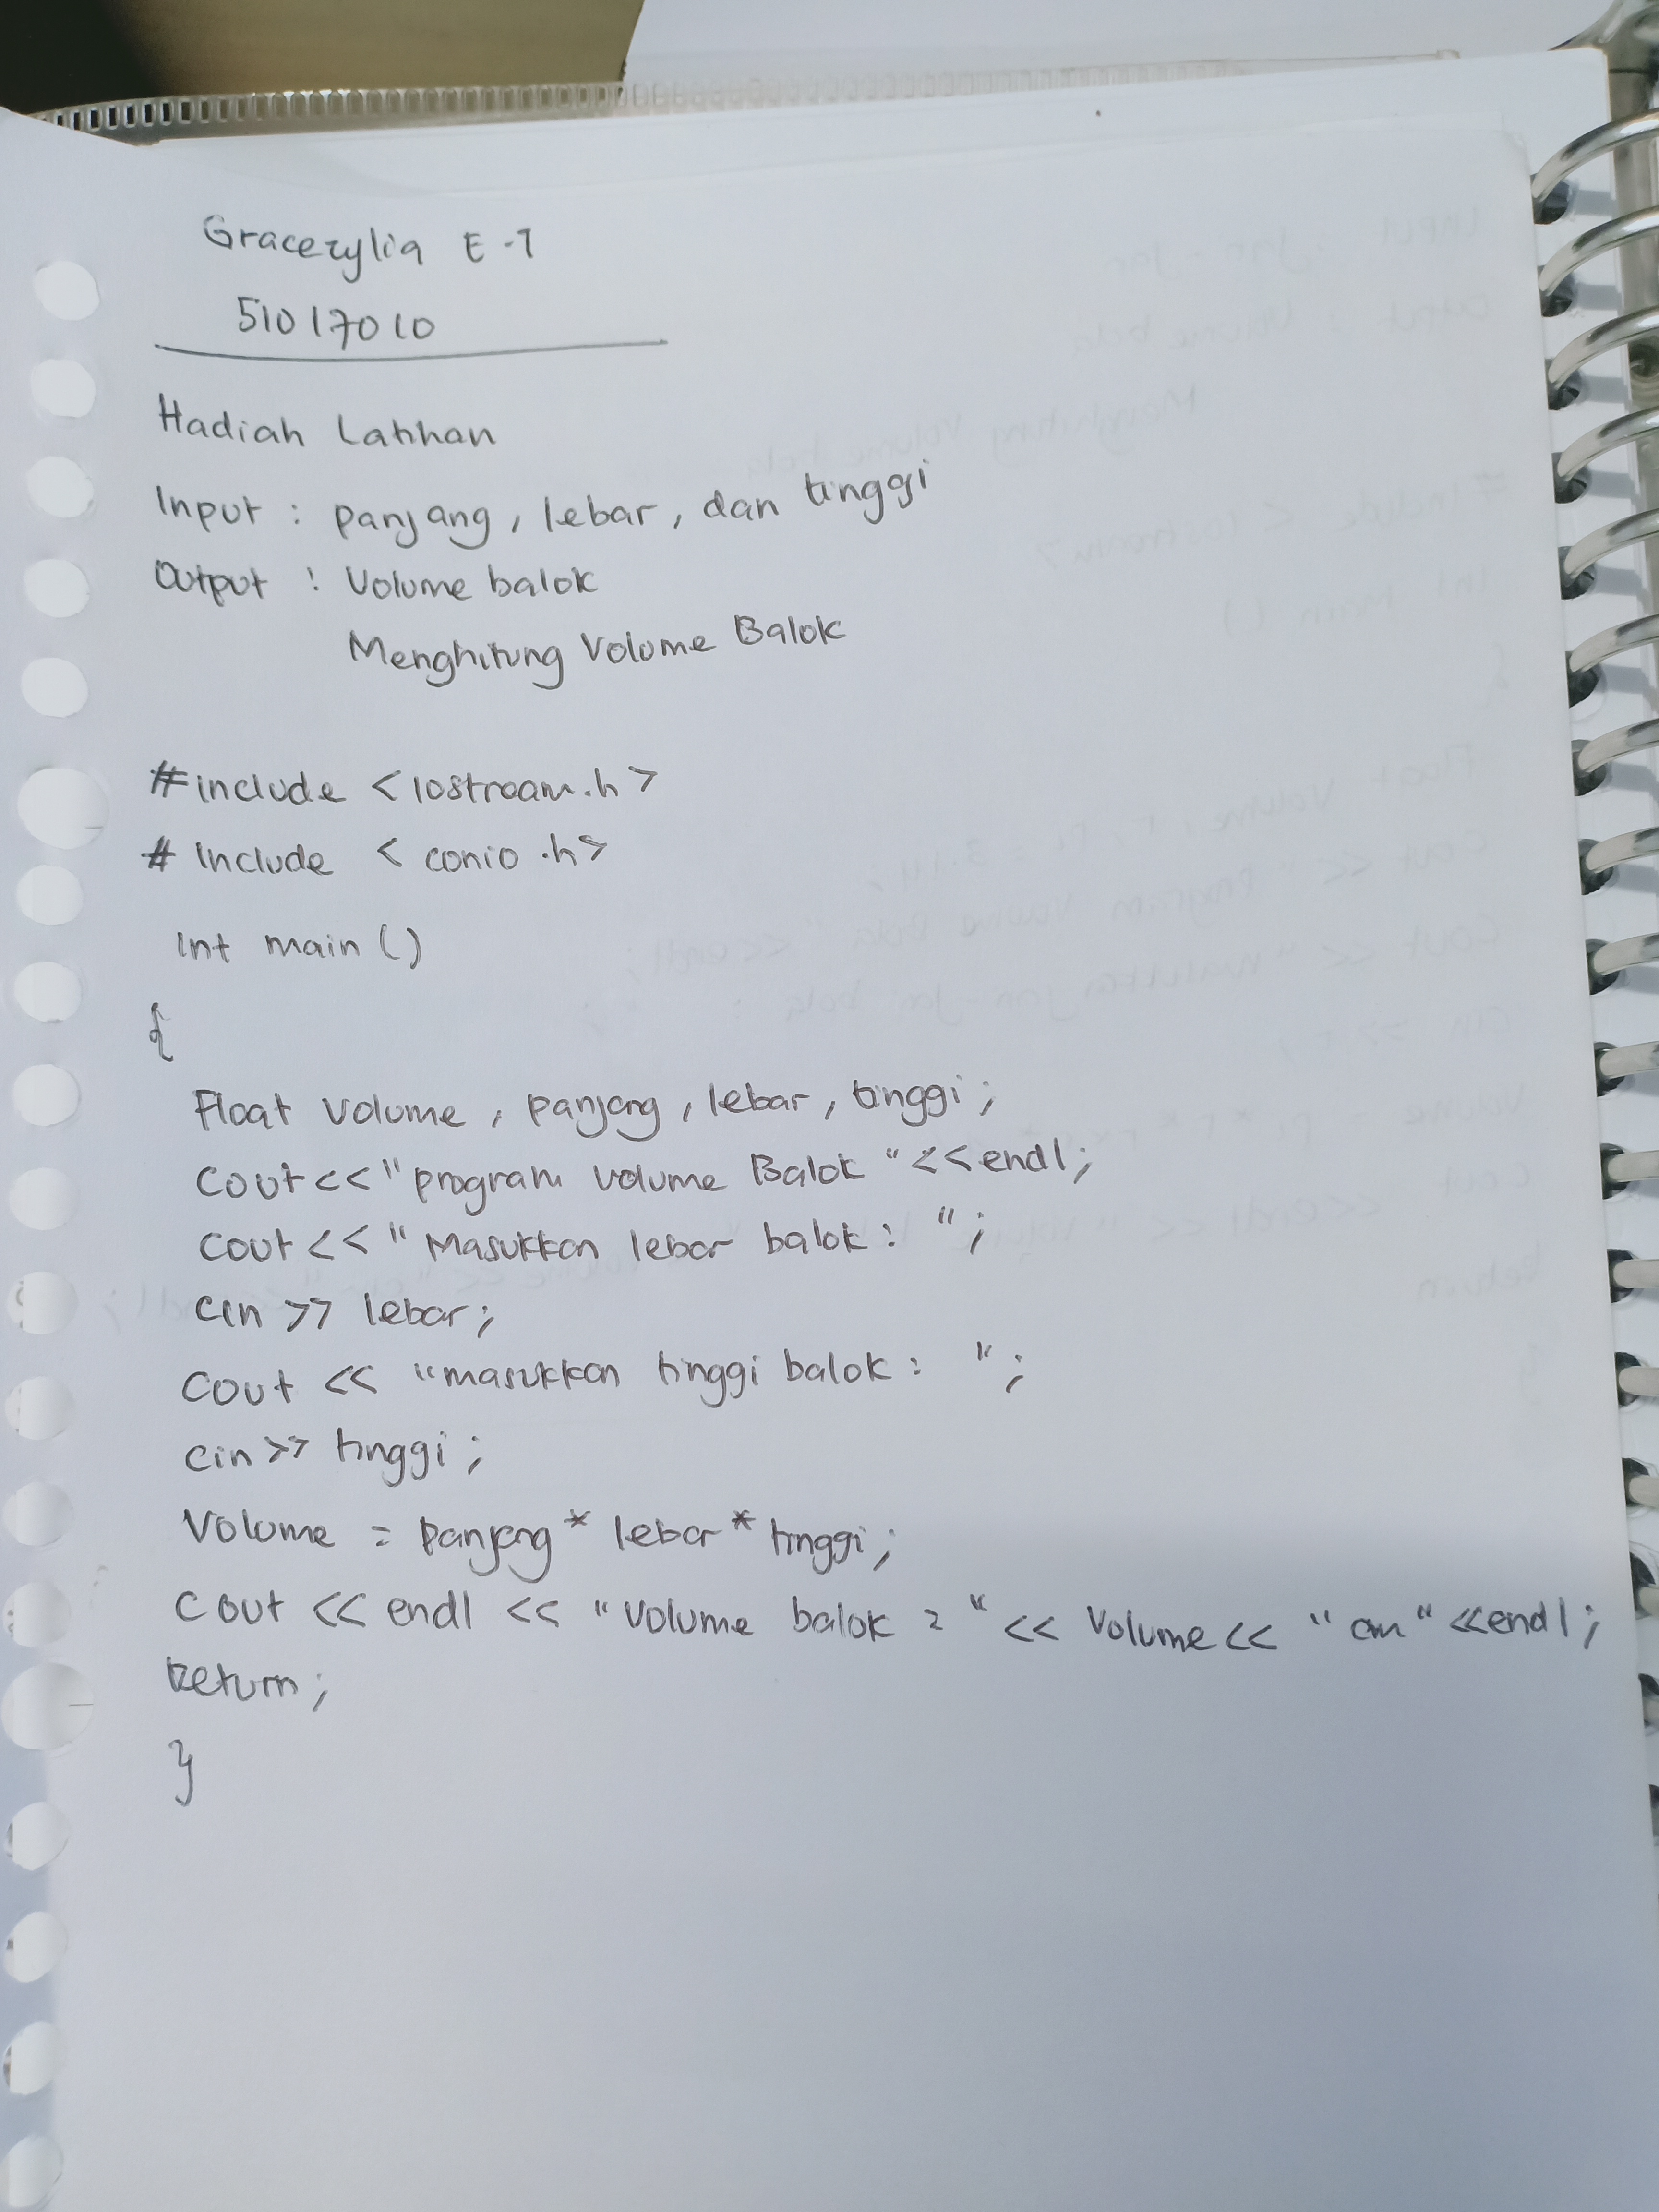 Gracezylia E-7
51017010
Hadiah Latihan
Input : panjang, lebar, dan tinggi
Output : Volume balok
Menghitung Volume Balok
#include <iostream.h>
# Include < conio .h>
Int main ()
{
Float volume , panjang , lebar , tinggi ;
Cout <<"program volume Balok "<<endl;
Cout << " Masukkan lebar balok : " ;
Cin >> lebar;
Cout << "masukkan tinggi balok : " ;
Cin >> tinggi ;
Volume = panjang * lebar * tinggi ;
Cout << endl << "Volume balok = " << Volume << " cm" <<endl ;
Return ;
}